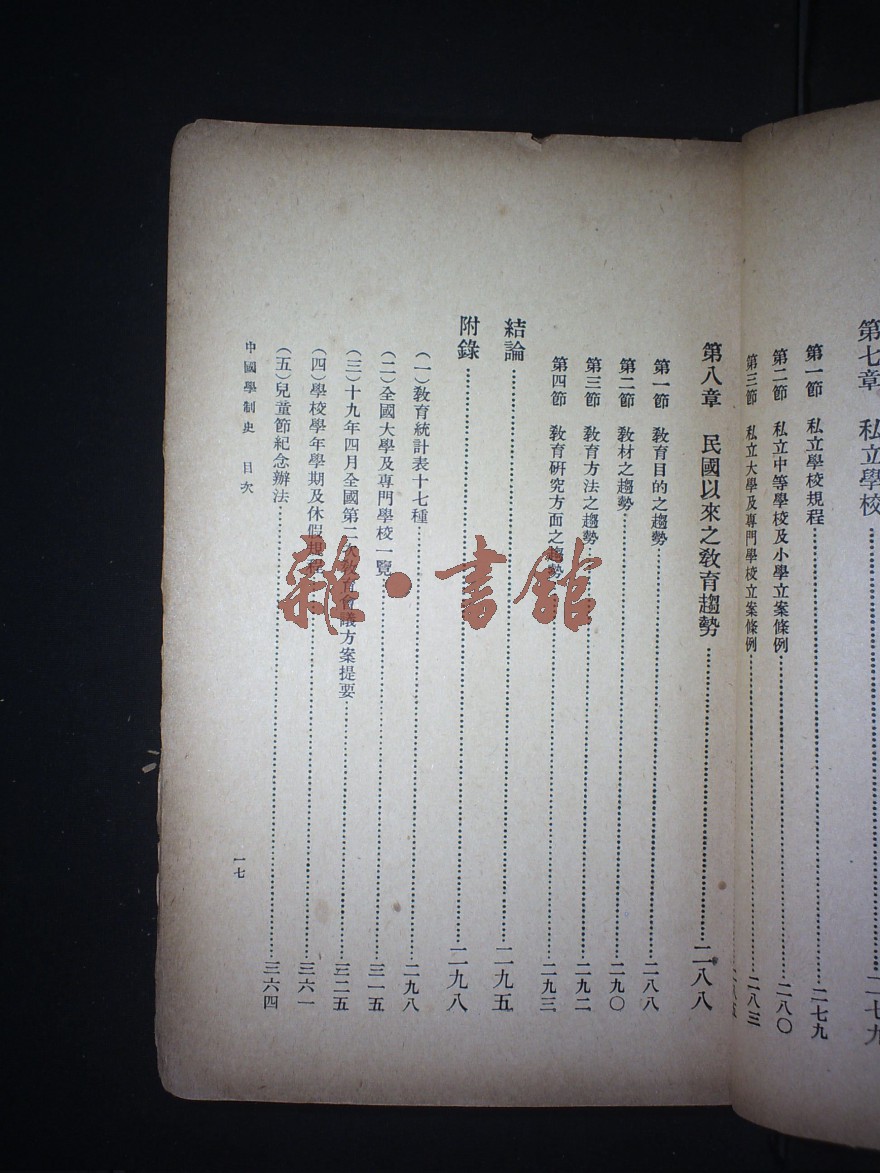 第七章　私立學校……二七九
第一節　私立學校規程……二七九
第二節　私立中等學校及小學立案條例……二八〇
第三節　私立大學及專門學校立案條例……二八三
第八章　民國以來之敎育趨勢……二八八
第一節　敎育目的之趨勢……二八八
第二節　敎材之趨勢……二九〇
第三節　敎育方法之趨勢……二九二
第四節　敎育硏究方面之趨勢……二九三
結論……二九五
附錄……二九八
（一）敎育統計表十七種……二九八
（二）全國大學及專門學校一覽……三一五
（三）十九年四月全國第二次敎育會議方案提要……三二五
（四）學校學年學期及休假規程……三六一
（五）兒童節紀念辦法……三六四
中國學制史　目次
一七
雜·書館